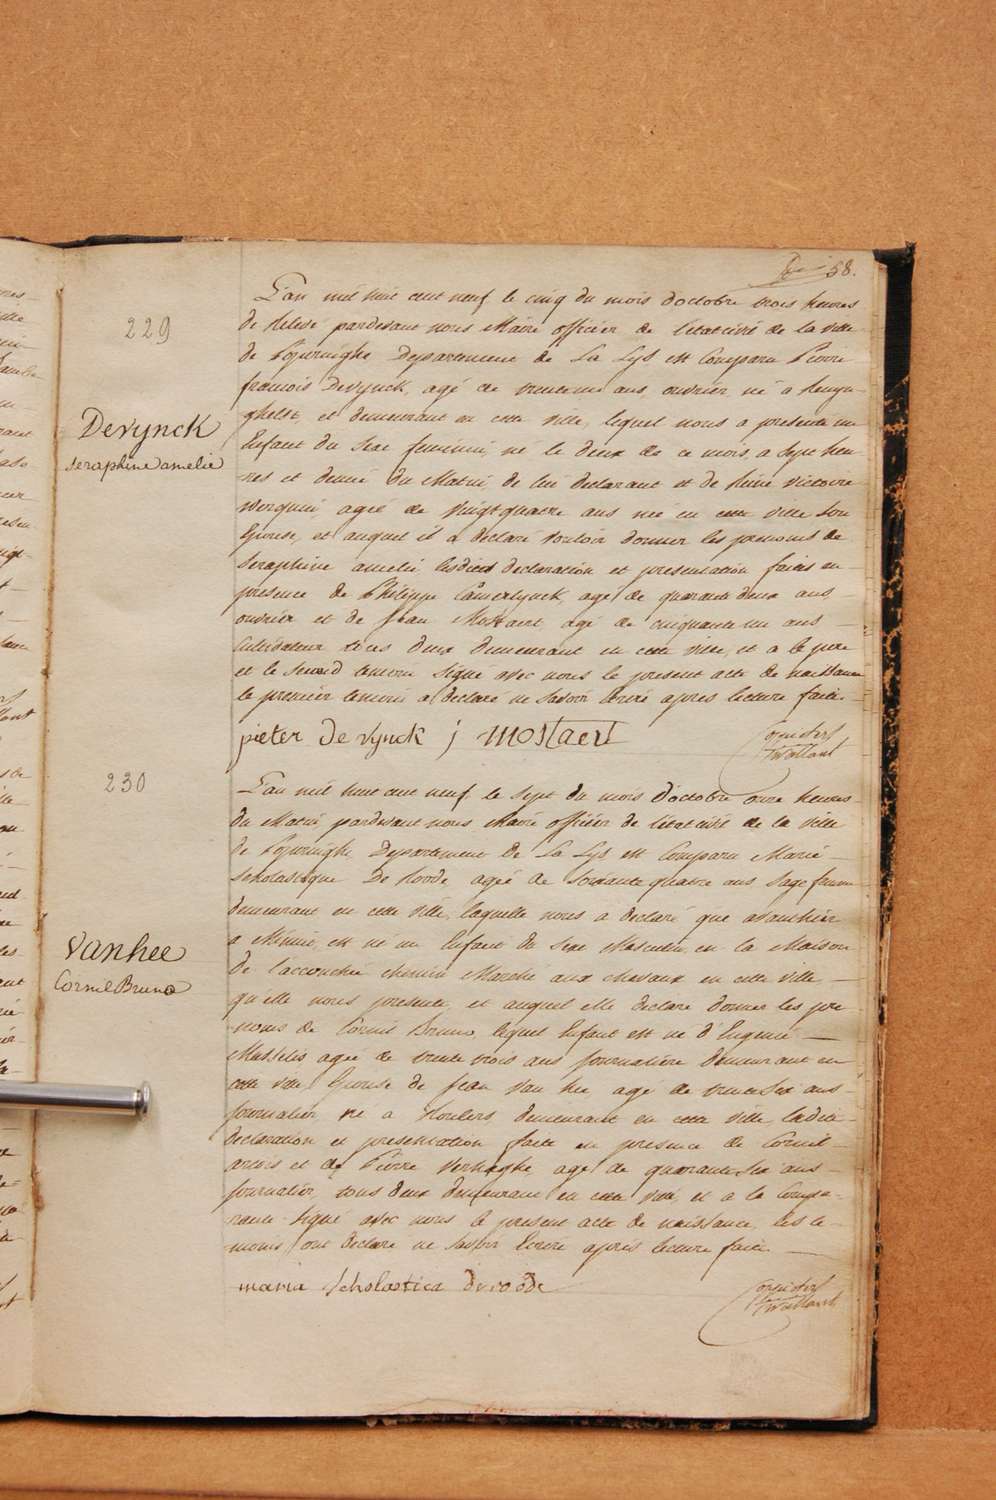 58.
229
Devynck
seraphine amelie
L'an mil huit cent neuf le cinq du mois d'octobre trois heures
de Relevé pardevant nous Maire officier de l'état civil de la ville
de Poperinghe Departement de La Lys est Comparu Pierre
francois Devynck, agé de trente un ans, ouvrier, né a Renyn-
ghelst, et demeurant en cette ville, lequel nous a presenté un
Enfant du Sexe feminin, né le deux de ce mois, a sept heu-
res et demie du Matin, de lui declarant et de Reine Victoire
Werquin, agée de Vingt quatre ans née en cette ville Son
Epouse, et auquel il a declaré vouloir donner les prenoms de
Seraphine amelie lesdites declaration et presentation faites en
presence de Philippe Camerlynck, agé de quarante deux ans
ouvrier et de Jean Mostaert agé de cinquante un ans
Cultivateur tous deux demeurant en cette ville, et a le pere
et le second temoin signé avec nous le present acte de naissance
le premier temoin a declaré ne Savoir Ecrire apres lecture faite.
pieter de vynck j mostaert
230
Vanhee
Cornil Bruno
L'an mil huit cent neuf le sept du mois d'octobre onze heures
du Matin, pardevant nous Maire officier de l'état civil de la ville
de Poperinghe Departement de La Lys est Comparu Marie
Scholastique De Roode agée de Soixante quatre ans Sage femme
demeurant en cette ville, laquelle nous a declaré que avanthier
a Minuit, est né un Enfant du Sexe Masculin en la Maison
de l'accouchée chemin Marché aux chevaux en cette ville
qu'elle nous presente, et auquel elle declare donner les pre-
noms de Cornil Bruno, lequel Enfant est né d'Eugenie
agée de trente trois ans journaliere demeurant en
cette ville Epouse de Jean Van hee agé de trente Six ans
journalier, né a Roulers, demeurant en cette ville ladite
declaration et presentation faite en presence de Cornil
artois et de Pierre Verhaeghe, agé de quarante Six ans
journalier, tous deux demeurant en cette ville et a la Compa-
rante signé avec nous le present acte de naissance, les te-
moins ont declaré ne Savoir Ecrire après lecture faite.
maria scholastica de roode